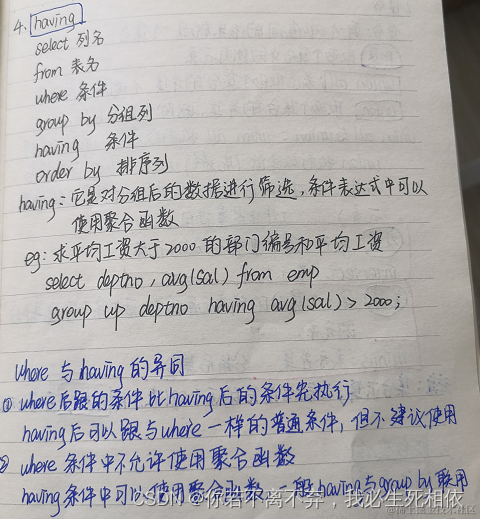 4. having
select 列名
from 表名
where 条件
group by 分组列
having 条件
order by 排序列
having：它是对分组后的数据进行筛选，条件表达式中可以
使用聚合函数
eg：求平均工资大于2000的部门编号和平均工资
select deptno, avg(sal) from emp
group up deptno having avg(sal) > 2000;
where 与 having 的异同
① where后跟的条件比having后的条件先执行
having后可以跟与where一样的普通条件，但不建议使用
② where 条件中不允许使用聚合函数
having条件中可以使用聚合函数 一般having与group by 联用
CSDN @你若不离不弃，我必生死相依